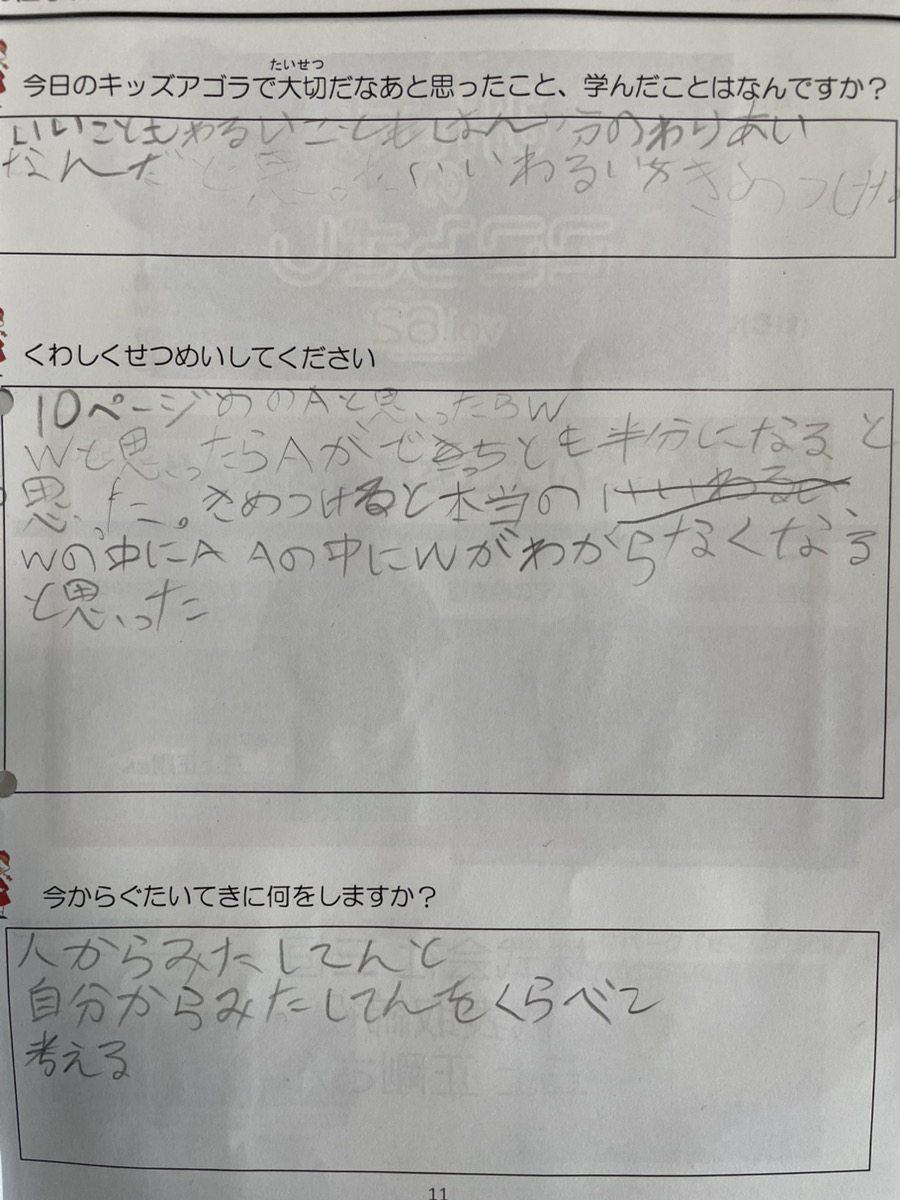 今日のキッズアゴラで大切だなあと思ったこと、学んだことはなんですか?
たいせつ
いいこともわるいこともはんぶん分のわりあい
なんだと思った。いいわるいをきめつけ
くわしくせつめいしてください
10ページめのAと思ったらW
Wと思ったらAがでどっちとも半分になると
思った。きめつけると本当の
Wの中にA Aの中にWがわからなくなる
と思った
今からぐたいてきに何をしますか?
人からみたしてんと
自分からみたしてんをくらべて
考える
11